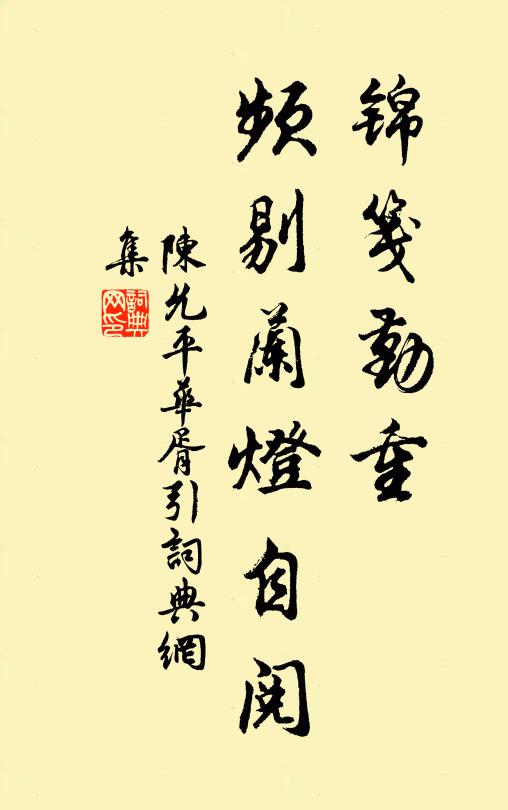 锦笺勤重
频剔蘭燈自閱
陳允平華胥引詞典網
集
詞典
网印